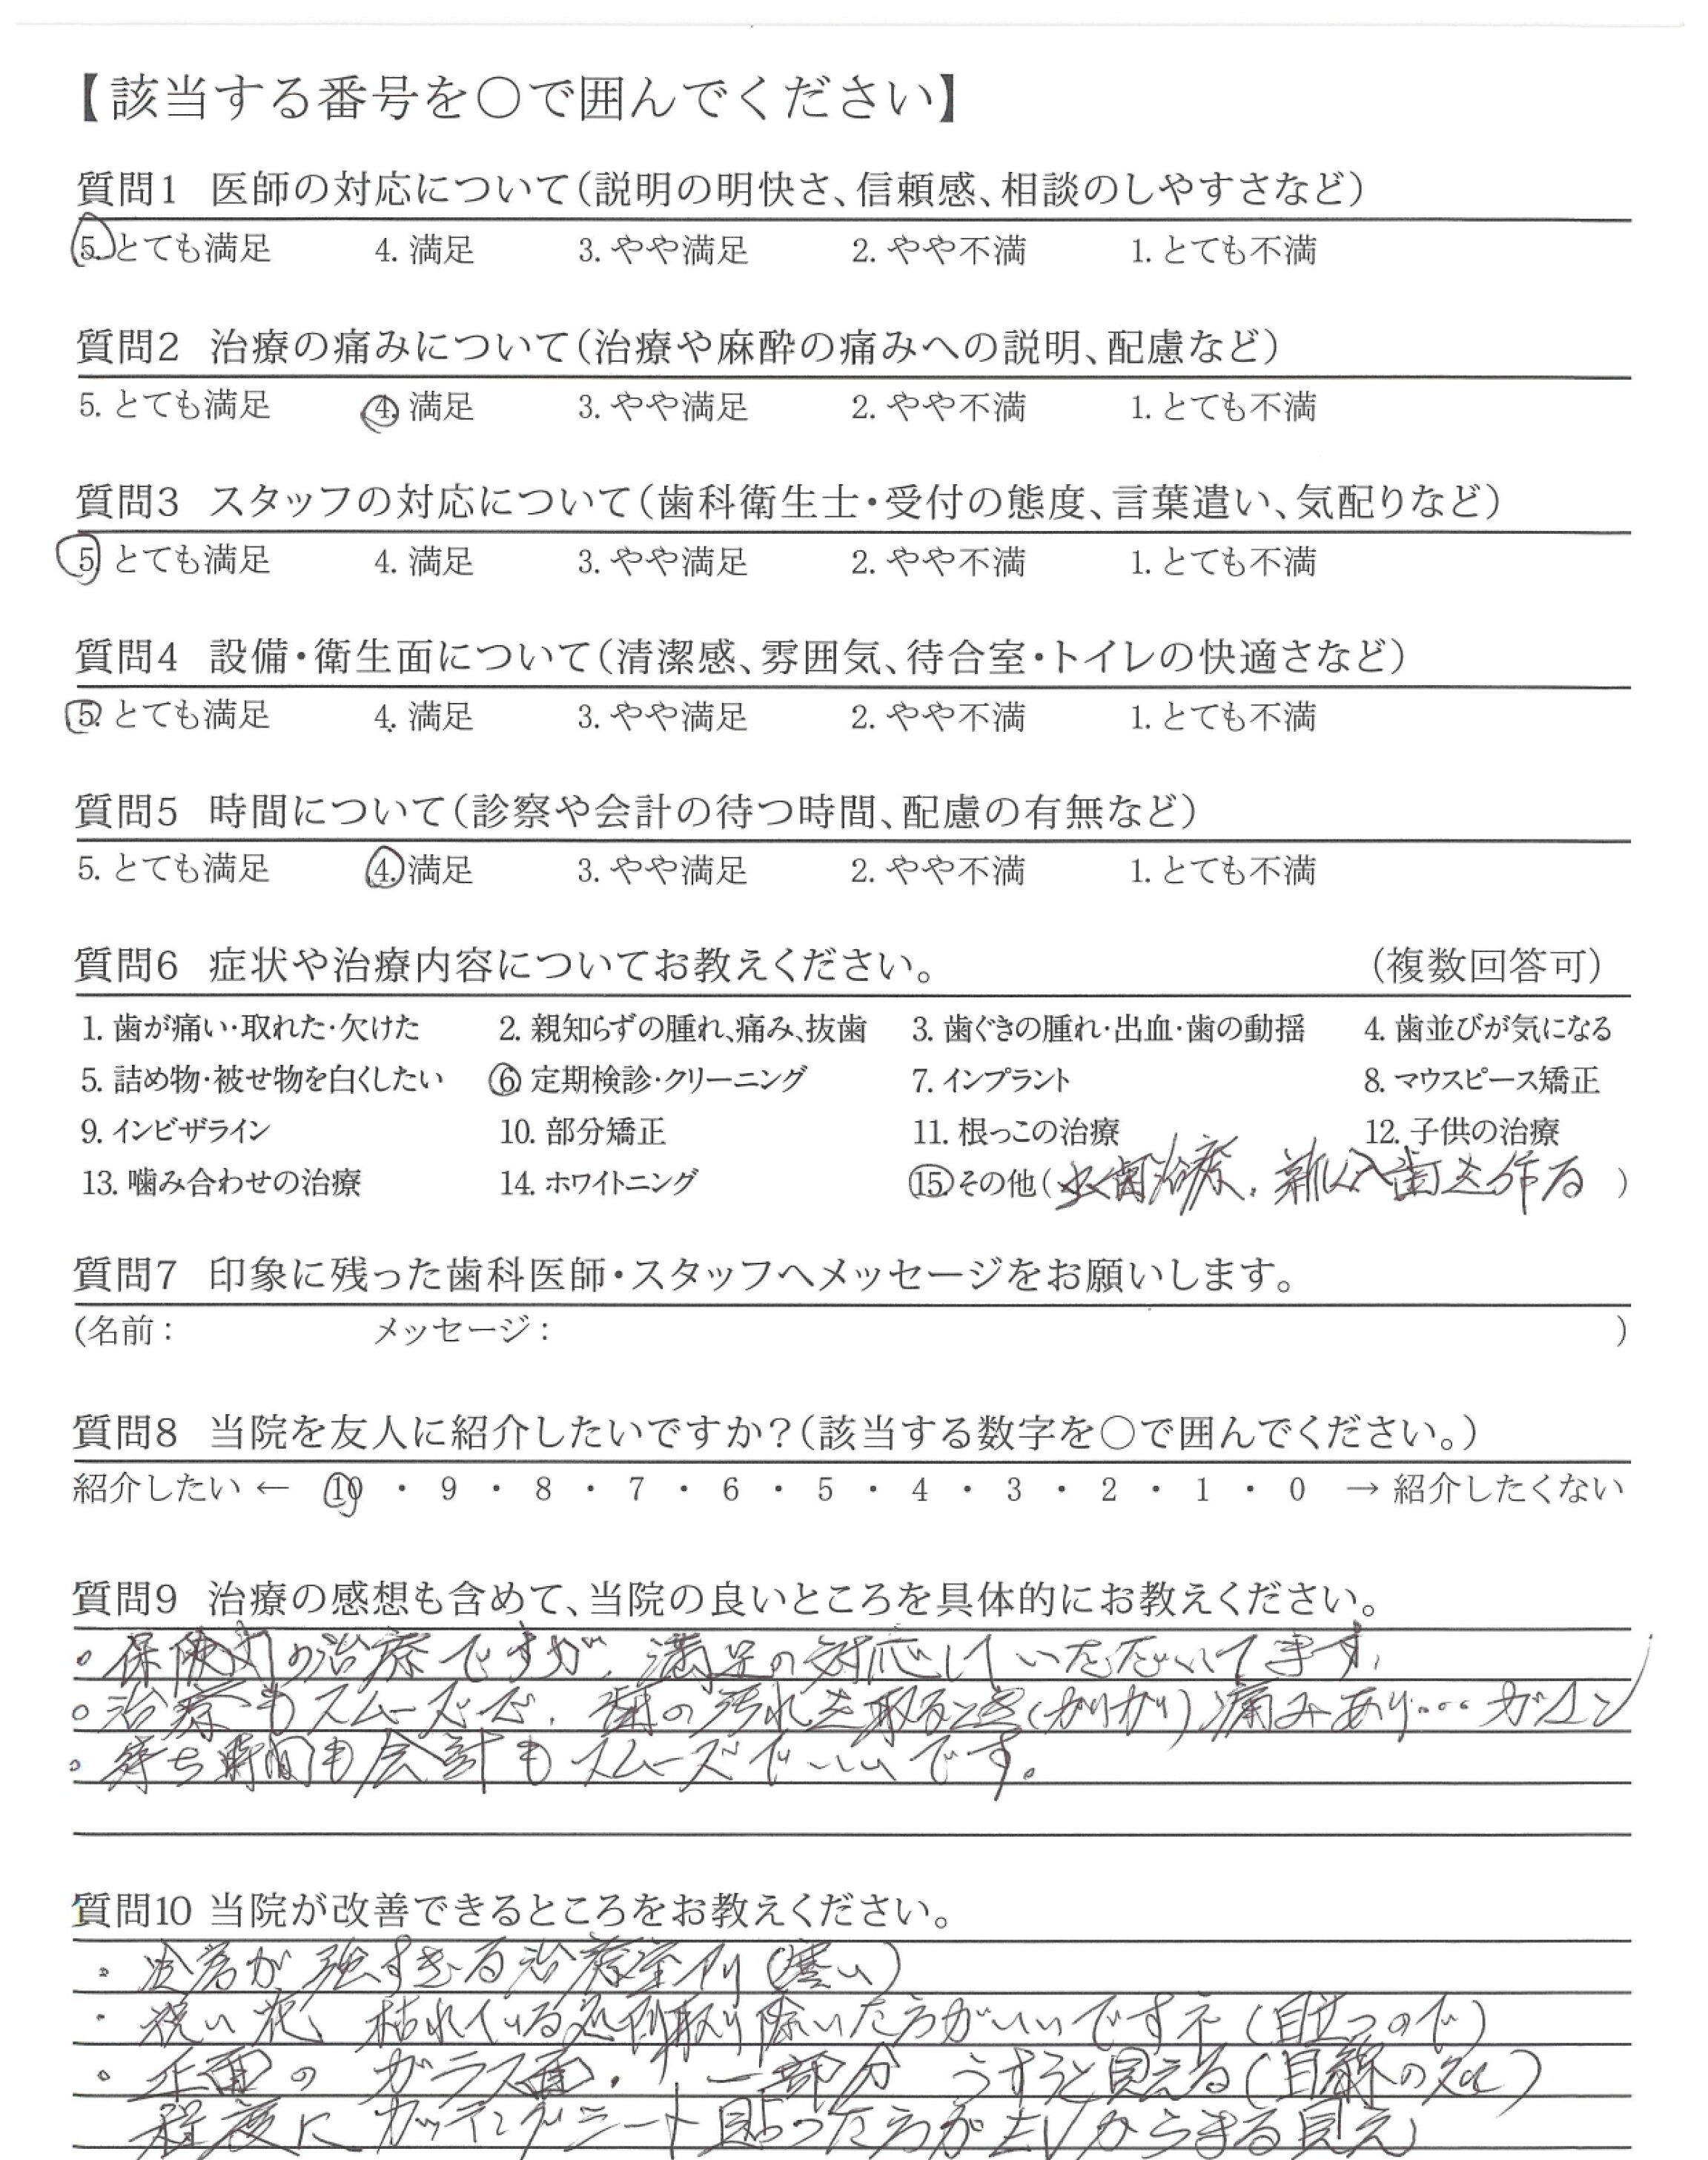 【該当する番号を○で囲んでください】
質問1 医師の対応について(説明の明快さ、信頼感、相談のしやすさなど)
5. とても満足 4. 満足 3. やや満足 2. やや不満 1. とても不満
質問2 治療の痛みについて(治療や麻酔の痛みへの説明、配慮など)
5. とても満足 4. 満足 3. やや満足 2. やや不満 1. とても不満
質問3 スタッフの対応について(歯科衛生士・受付の態度、言葉遣い、気配りなど)
5. とても満足 4. 満足 3. やや満足 2. やや不満 1. とても不満
質問4 設備・衛生面について(清潔感、雰囲気、待合室・トイレの快適さなど)
5. とても満足 4. 満足 3. やや満足 2. やや不満 1. とても不満
質問5 時間について(診察や会計の待つ時間、配慮の有無など)
5. とても満足 4. 満足 3. やや満足 2. やや不満 1. とても不満
質問6 症状や治療内容についてお教えください。 (複数回答可)
1. 歯が痛い・取れた・欠けた 2. 親知らずの腫れ、痛み、抜歯 3. 歯ぐきの腫れ・出血・歯の動揺 4. 歯並びが気になる
5. 詰め物・被せ物を白くしたい 6. 定期検診・クリーニング 7. インプラント 8. マウスピース矯正
9. インビザライン 10. 部分矯正 11. 根っこの治療 12. 子供の治療
13. 噛み合わせの治療 14. ホワイトニング 15. その他(虫歯治療、新しい入歯を作る)
質問7 印象に残った歯科医師・スタッフへメッセージをお願いします。
(名前: メッセージ: )
質問8 当院を友人に紹介したいですか?(該当する数字を○で囲んでください。)
紹介したい ← 10 ・ 9 ・ 8 ・ 7 ・ 6 ・ 5 ・ 4 ・ 3 ・ 2 ・ 1 ・ 0 → 紹介したくない
質問9 治療の感想も含めて、当院の良いところを具体的にお教えください。
。保険内の治療ですが、満足の対応していただいてます。
。治療もスムーズで、歯の汚れを取るとき(ガリガリ)痛みあり…ガマン
。待ち時間も会計もスムーズでいいです。
質問10 当院が改善できるところをお教えください。
・冷房が強すぎる治療室例(寒い)
・祝い花、枯れている処取り除いた方がいいですネ(目立つので)
・正面のガラス面、一部分 うすうと見える(目線の
程度にカッティングシート貼った方が 見え